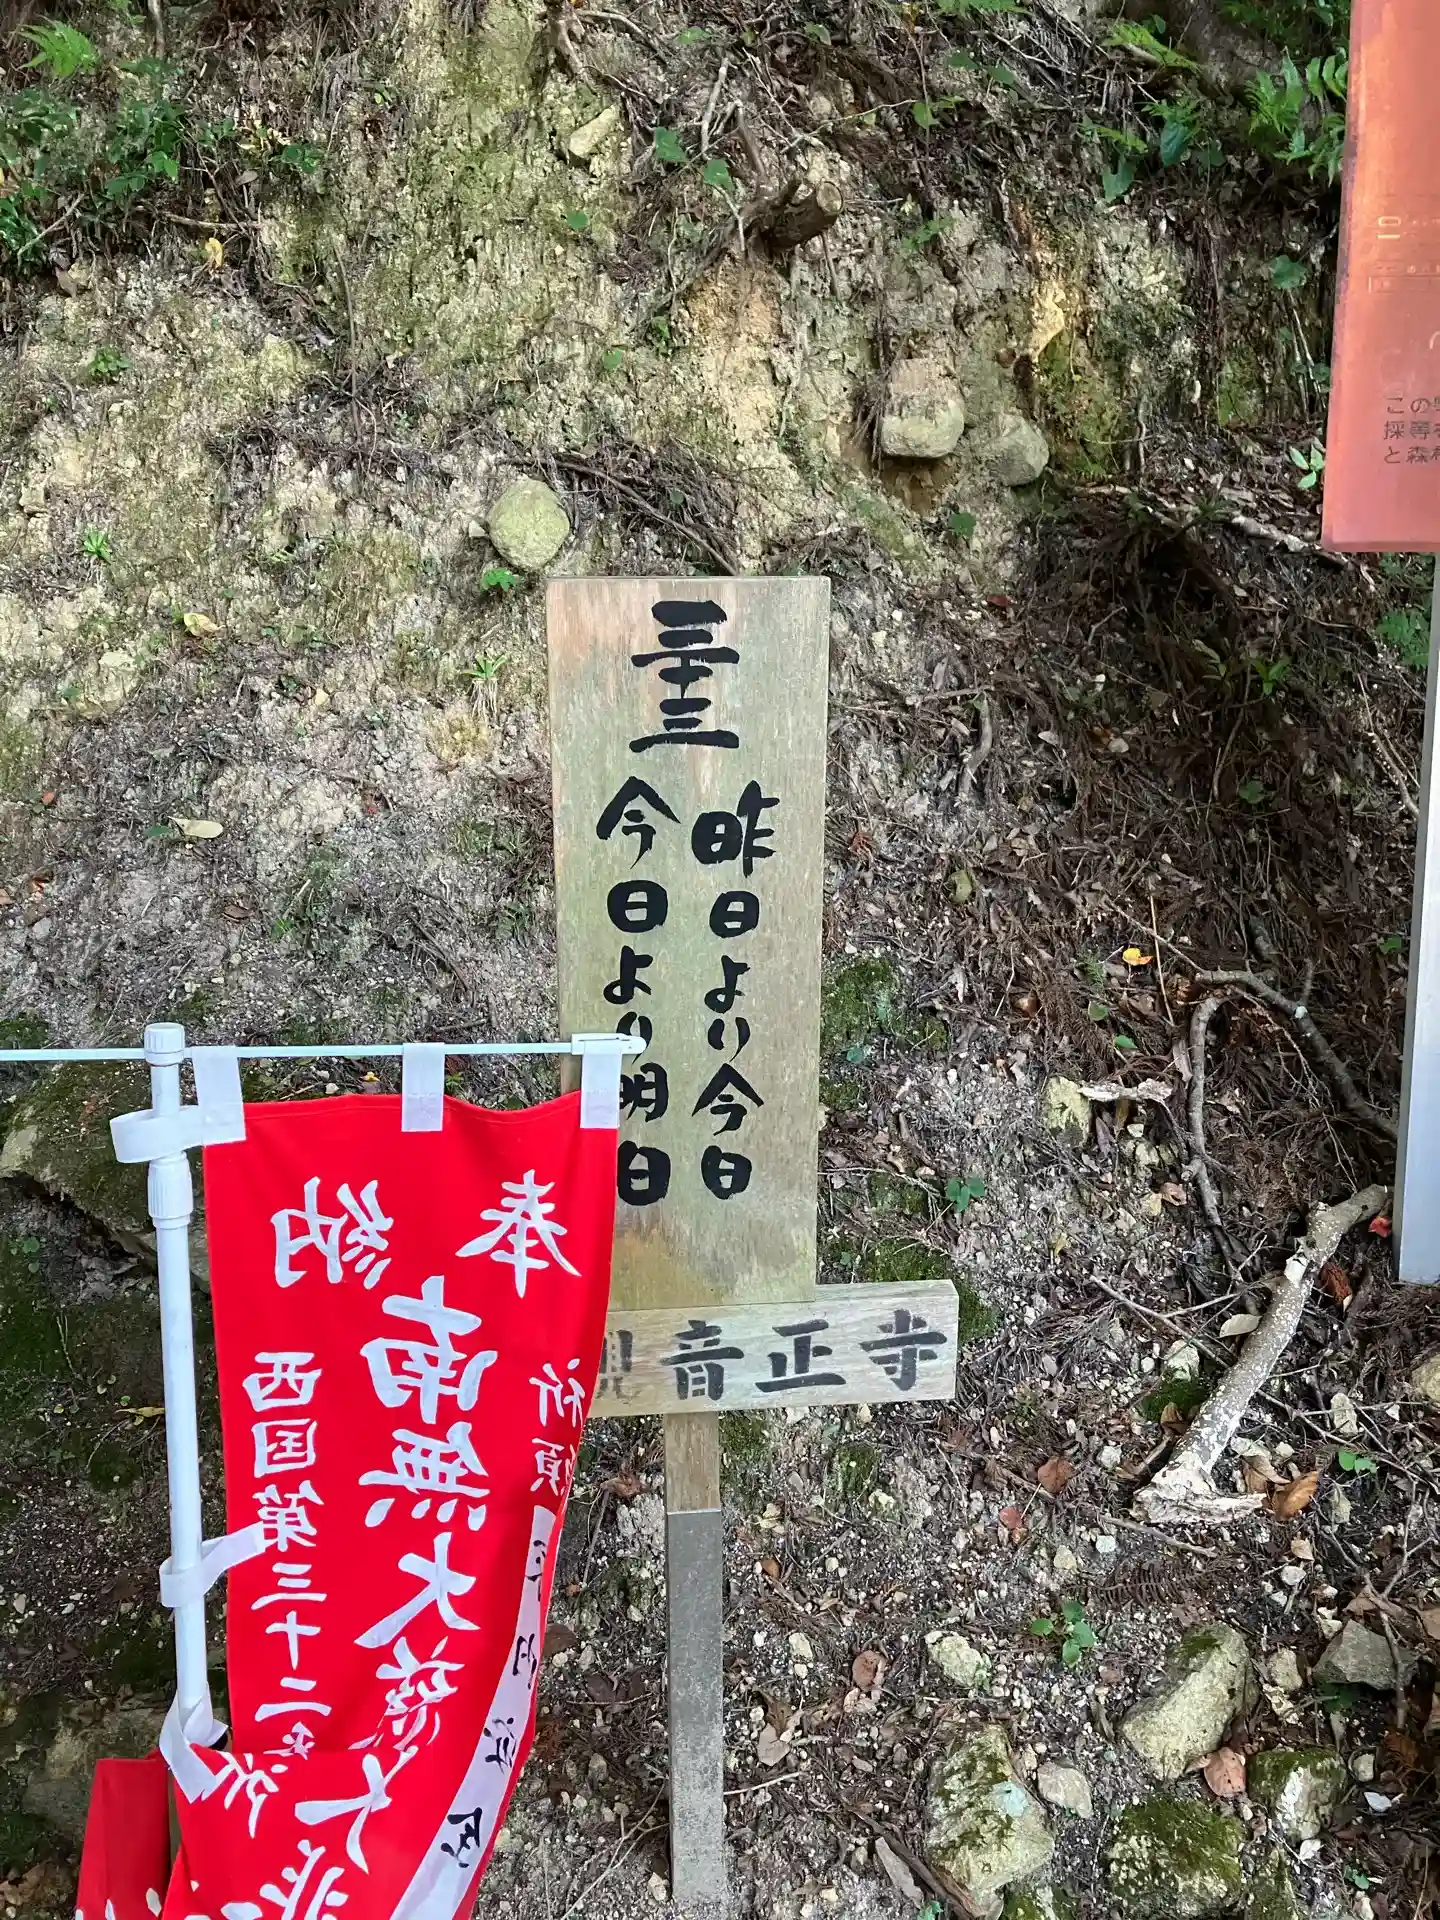 三十三
昨日より今日
今日より明日
観音正寺
奉納
祈願
南無大慈大悲
西国第三十二番札所
この
採等
と森